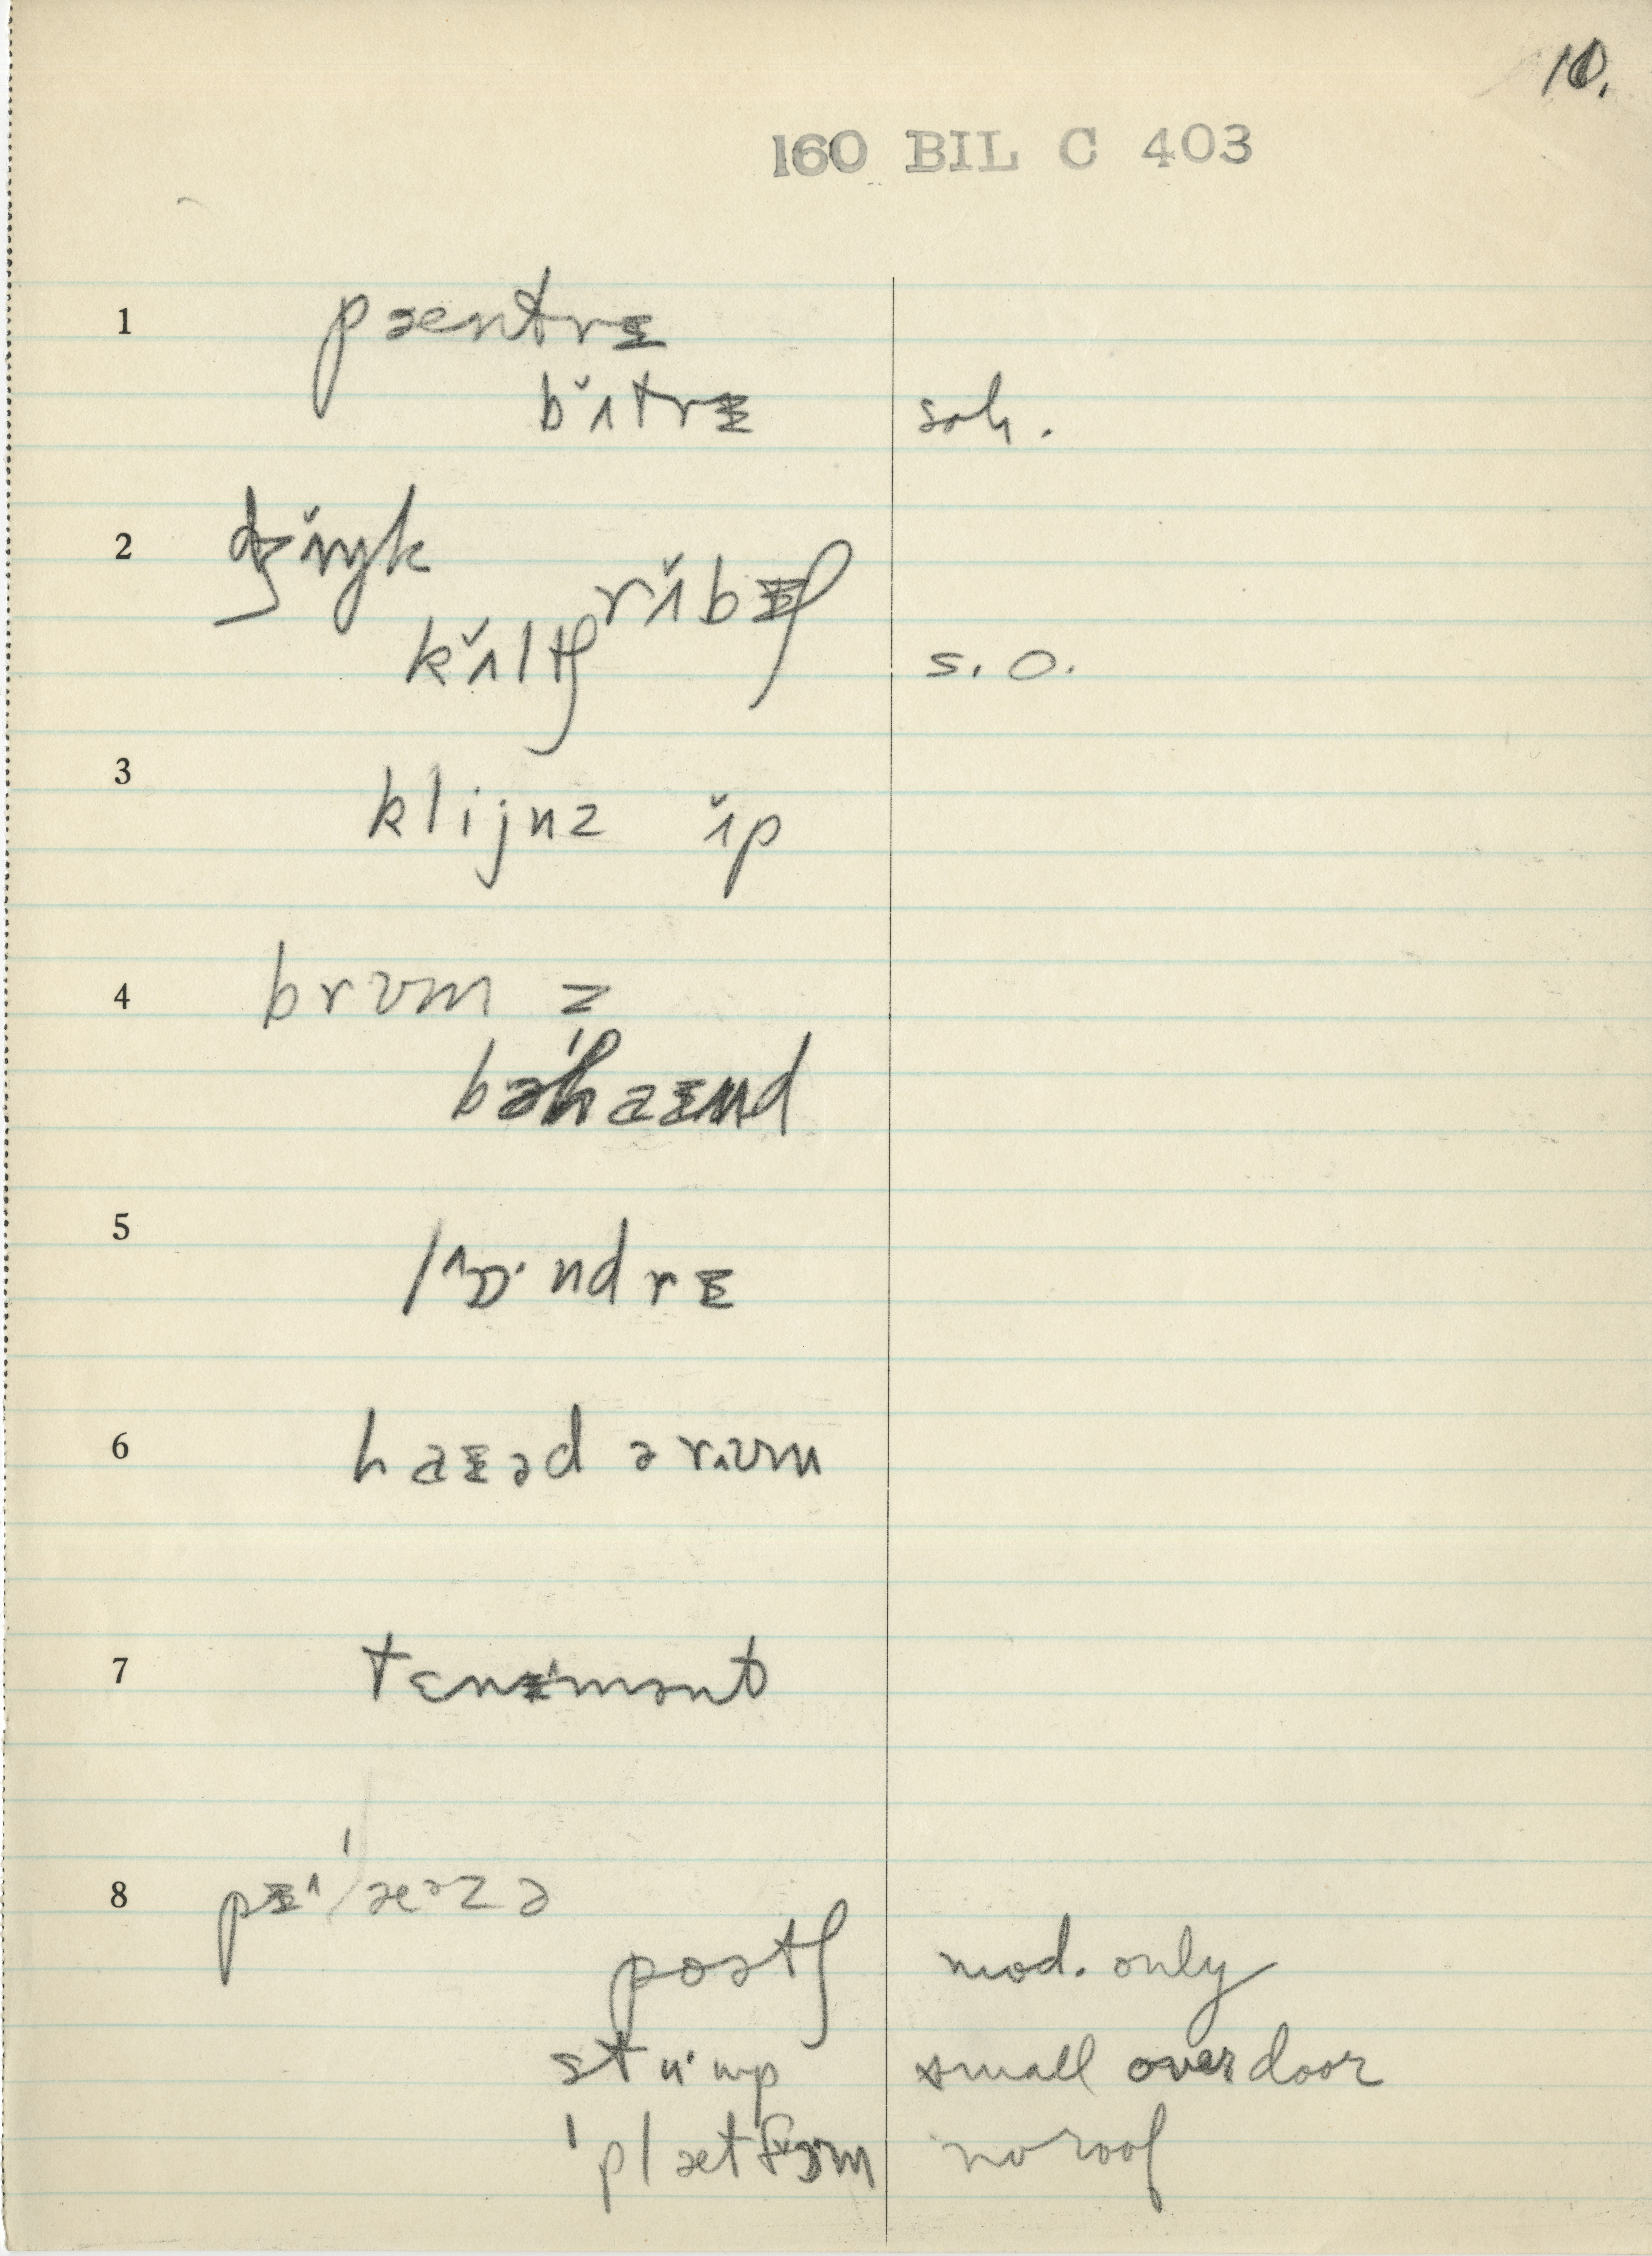 10.
160 BIL C 403
1 pæntrɪ
bʌ̌trɪ soh.
2 dʒʌ̌ŋk
rʌ̌bɪʃ
kʌ̌ltʃ s.o.
3 klijnz ʌ̌p
4 brʊm z
bəˈhaɪnd
5 lɒ·ndrɪ
6 haɛəd ə rʊm
7 tenɪmənt
8
poətʃ mod. only
small over door
ˈplætfɔm no roof